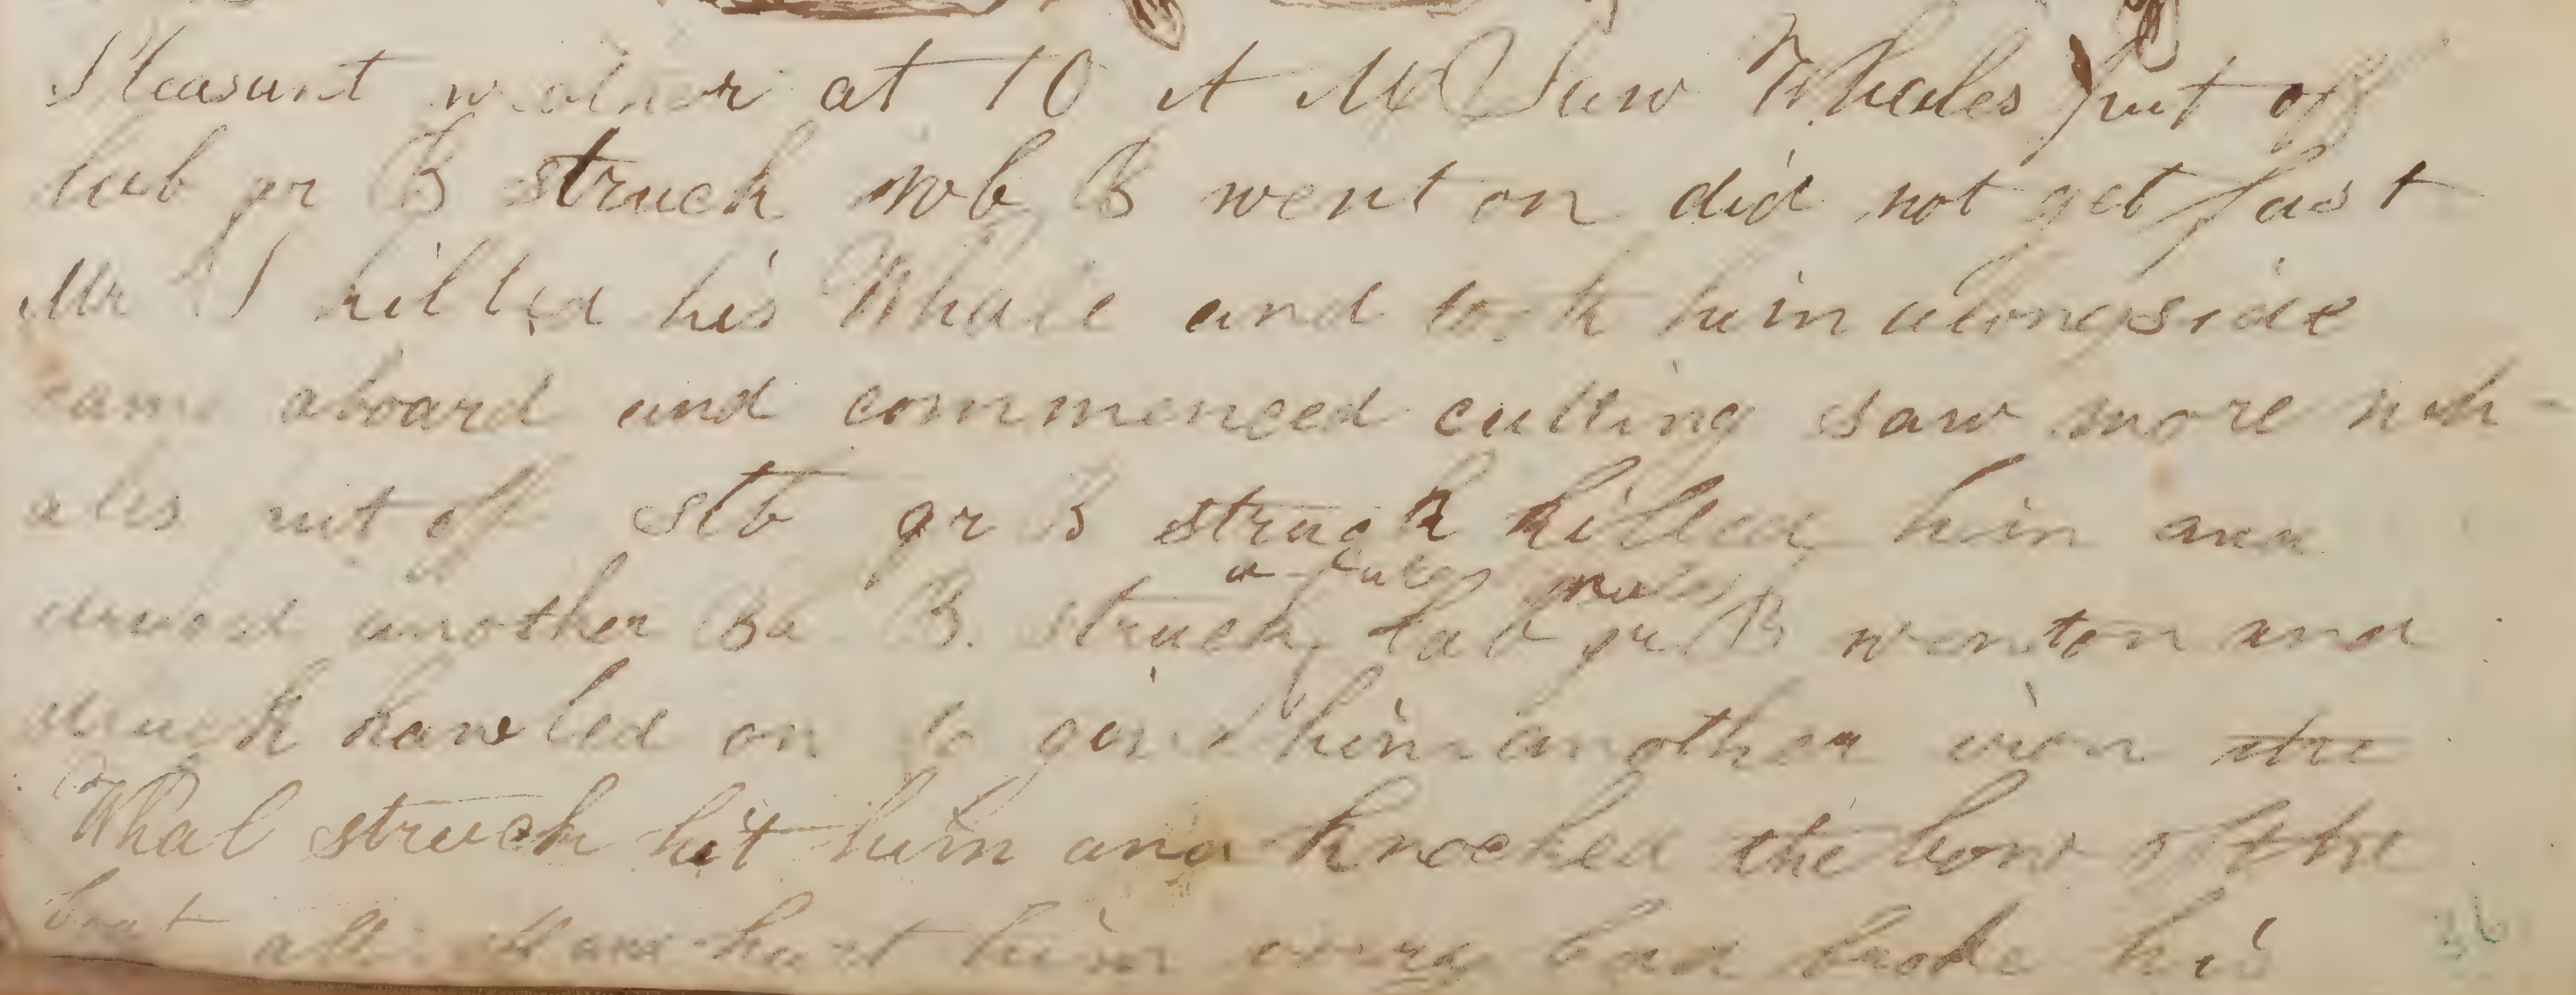 Pleasunt weather at 10 A M Saw Whales put off
lub qr B struck wb B went on did not get fast
Mr killed his Whale and took him alongside
came aboard and commenced cutting saw more wh-
ales put off stb qr B struck killed him and
another B. struck B went on and
struck hawled on to give him another iron the
Whal struck hit him and knocked the bow of the
boat hurt him very bad broke his
36